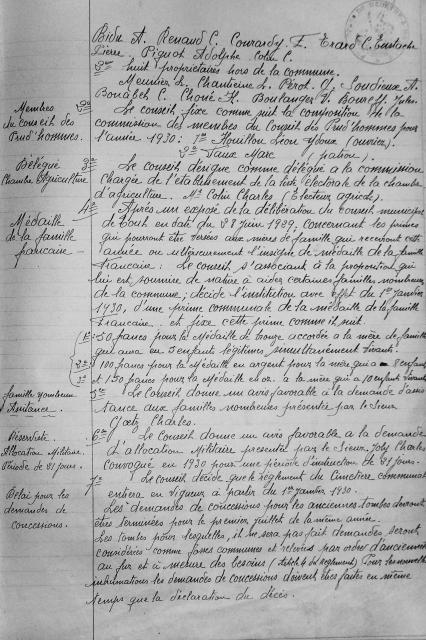 Bidu A. Renaud C. Courardy F. Erard C. Eustache
Pierre, Pignot Adolphe. Colin C.
2° huit propriétaires hors de la commune.
Meunier L. Chantreine L. Pérot. Ch. Soudieux A.
Bonabel C. Choné H. Boulanger V. Jules.
Membres
du conseil des
Prud'hommes.
2° Le conseil fixe comme suit la composition de la
commission des membres du Conseil des Prud'hommes pour
l'année 1930: 1° Houillon Léon (ouvrier).
2° Marc (patron).
Délégué
Chambre d'Agriculture
3° Le conseil désigne comme délégué à la commission
chargée de l'établissement de la liste électorale de la chambre
d'agriculture. Mr Colin Charles (Electeur agricole).
Médaille
de la famille
française
4° Après un exposé de la délibération du Conseil municipal
de Toul en date du 28 Juin 1929, concernant les primes
qui pourront être versées aux mères de famille qui recevront cette
année ou ultérieurement l'insigne de médaille de la famille
française: Le Conseil s'associant à la proposition qui
lui est soumise de nature à aider certaines familles nombreuses
de la commune; décide l'institution avec effet du 1er Janvier
1930, d'une prime communale de la médaille de la famille
française et fixe cette prime comme suit.
1°: 50 francs pour la Médaille de bronze accordée à la mère de famille
qui aura eu 5 enfants légitimes simultanément vivants.
2° 100 francs pour la Médaille en argent pour la mère qui a 8 enfants
3° et 150 francs pour la Médaille en or. à la mère qui a 10 enfants vivants
famille nombreuse
Assistance.
5° Le Conseil donne un avis favorable à la demande d'assis
tance aux familles nombreuses présentée par le Sieur
Charles.
Réserviste
Allocation Militaire.
Période de 21 jours.
6° Le Conseil donne un avis favorable à la demande
d'allocation Militaire présentée par le Sieur Joly Charles
convoqué en 1930 pour une période d'instruction de 21 jours.
Délai pour les
demandes de
concessions.
7° Le Conseil décide que le règlement du Cimetière communal
entrera en vigueur à partir du 1er Janvier 1930.
Les demandes de concessions pour les anciennes tombes devront
êtres terminées pour le premier juillet de la même année.
Les tombes pour lesquelles, il ne sera pas fait demandes seront
considérées comme fosses communes et relevées par ordre d'ancienneté
au fur et à mesure des besoins (article 4 du Règlement) Pour les nouvelles
inhumations les demandes de concessions doivent êtres faites en même
temps que la déclaration du décès.